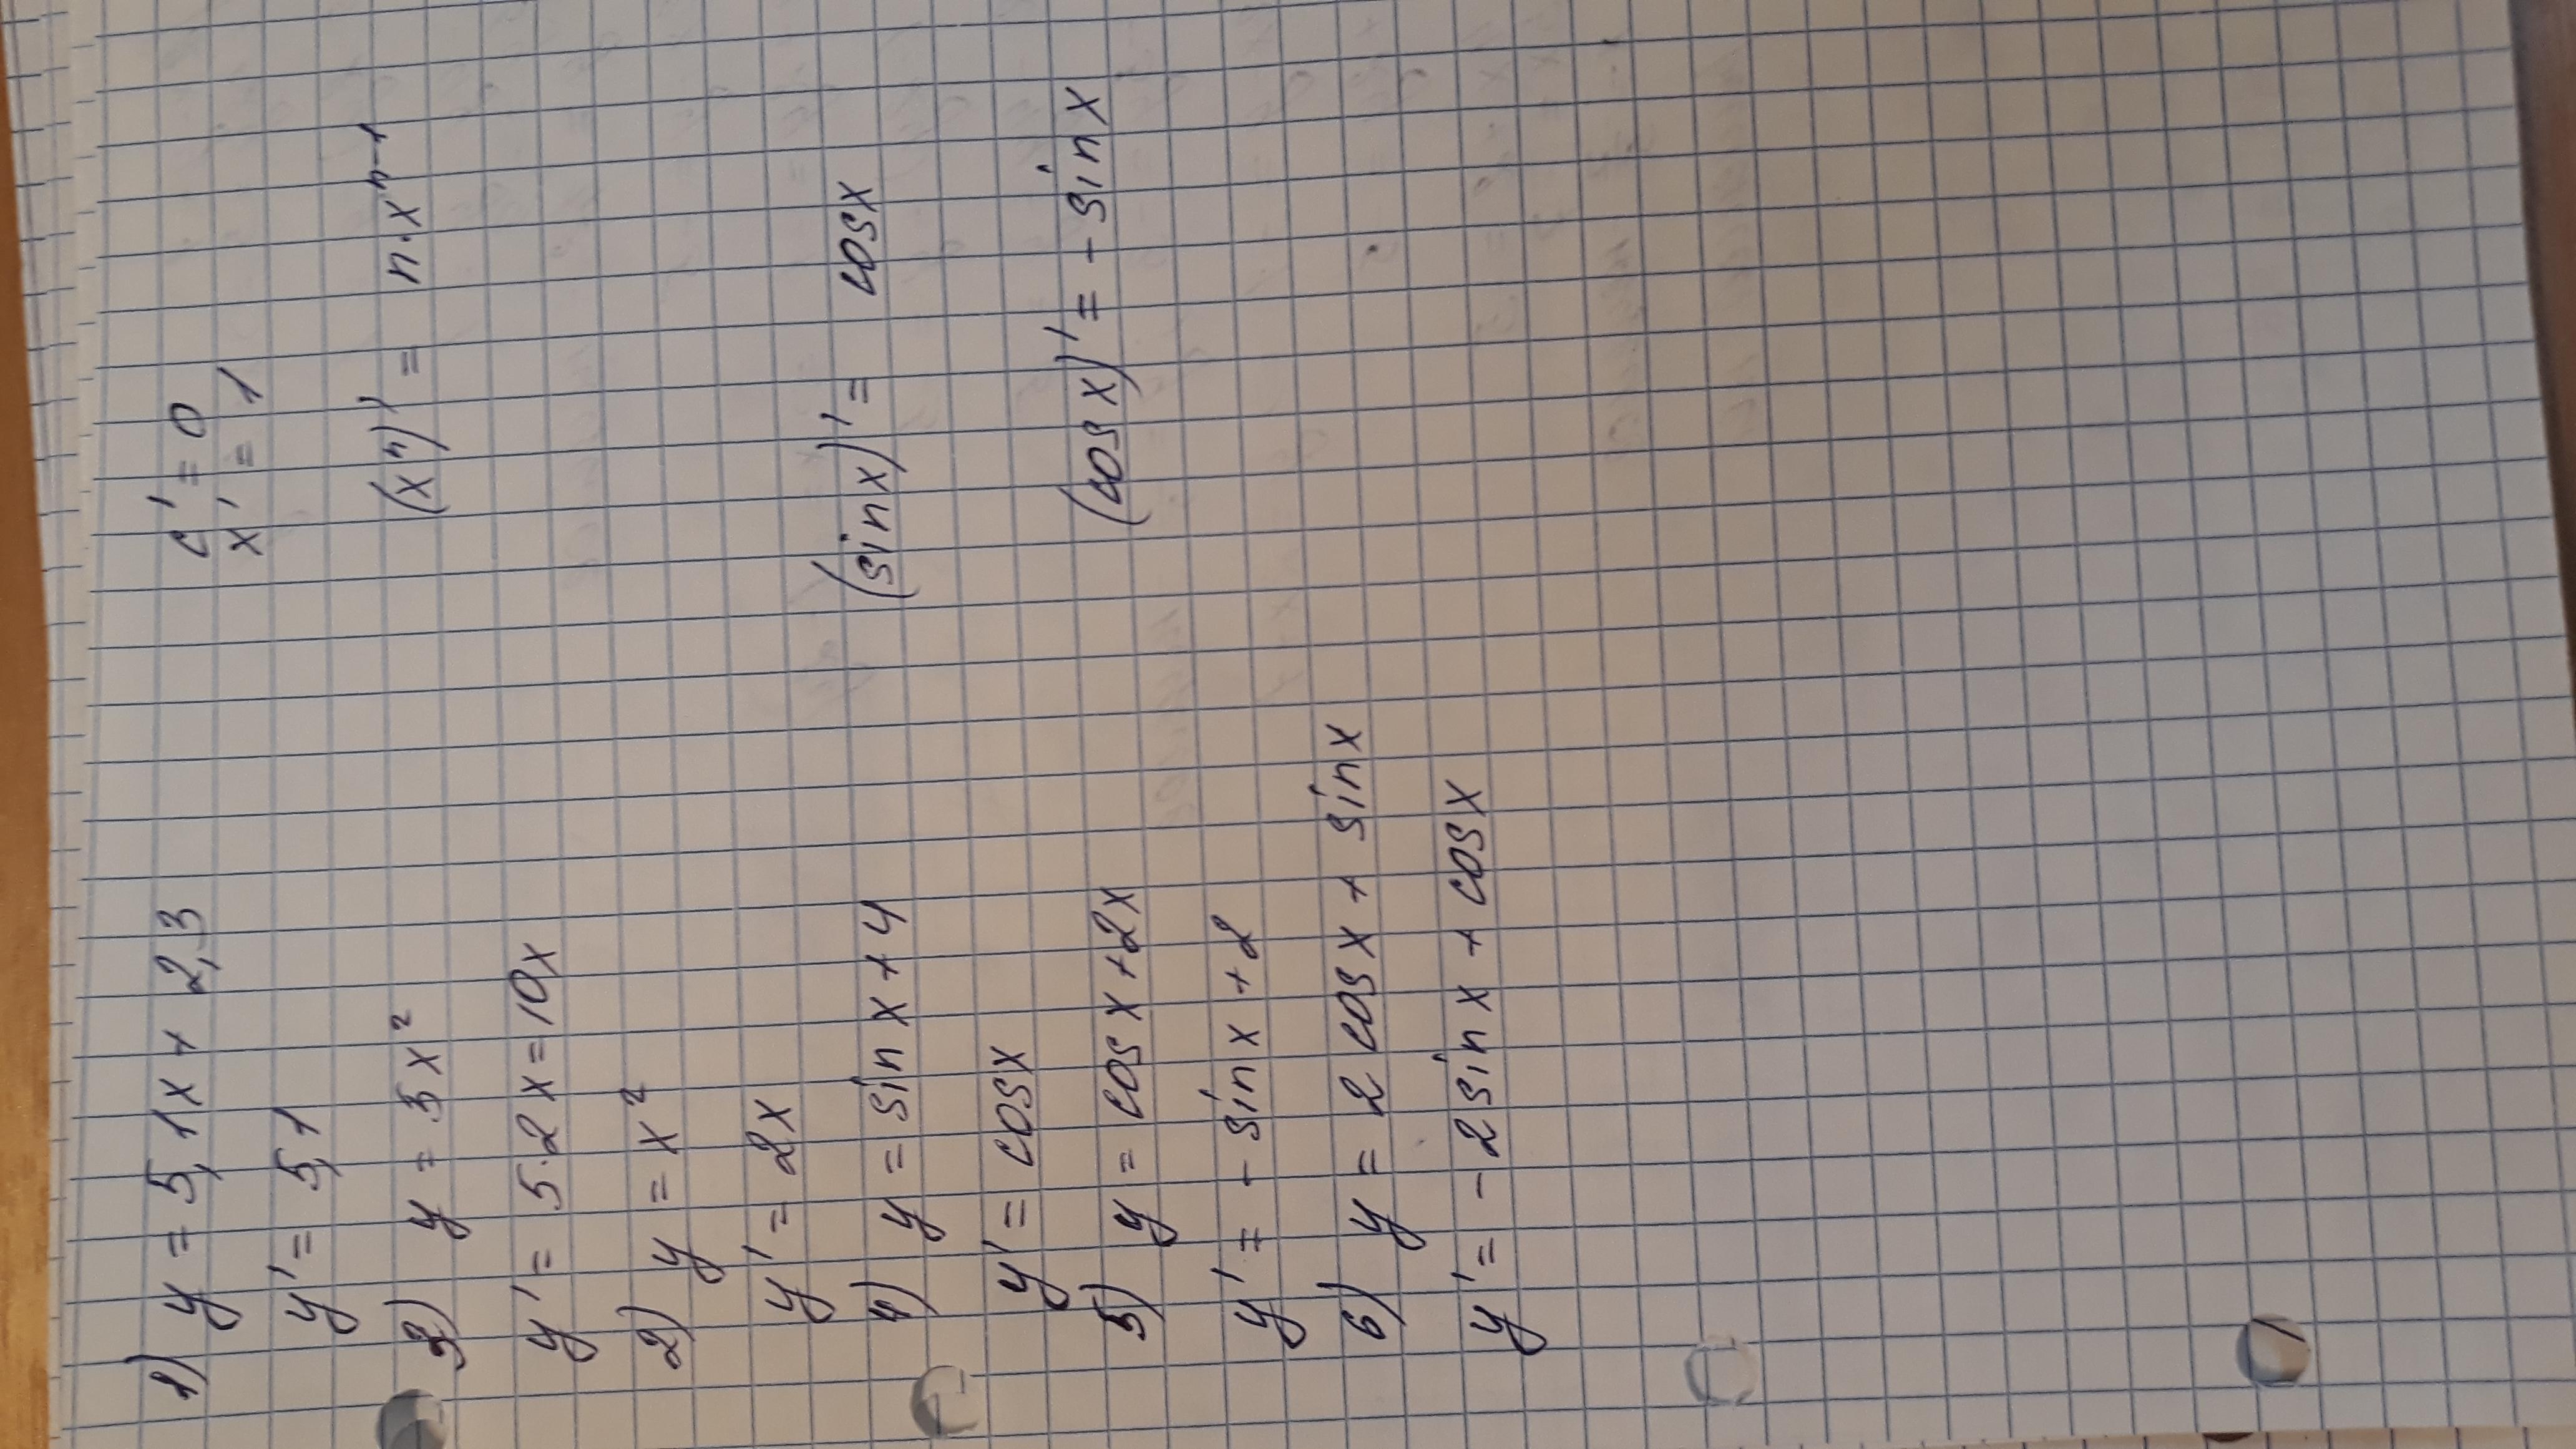 1) y = 5,1x + 2,3
c' = 0
x' = 1
y' = 5,1
3) y = 5x²
(xⁿ)' = n·xⁿ⁻¹
y' = 5·2x = 10x
2) y = x²
y' = 2x
4) y = sin x + 4
(sin x)' = cos x
y' = cos x
5) y = cos x + 2x
(cos x)' = - sin x
y' = - sin x + 2
6) y = 2 cos x + sin x
y' = - 2 sin x + cos x